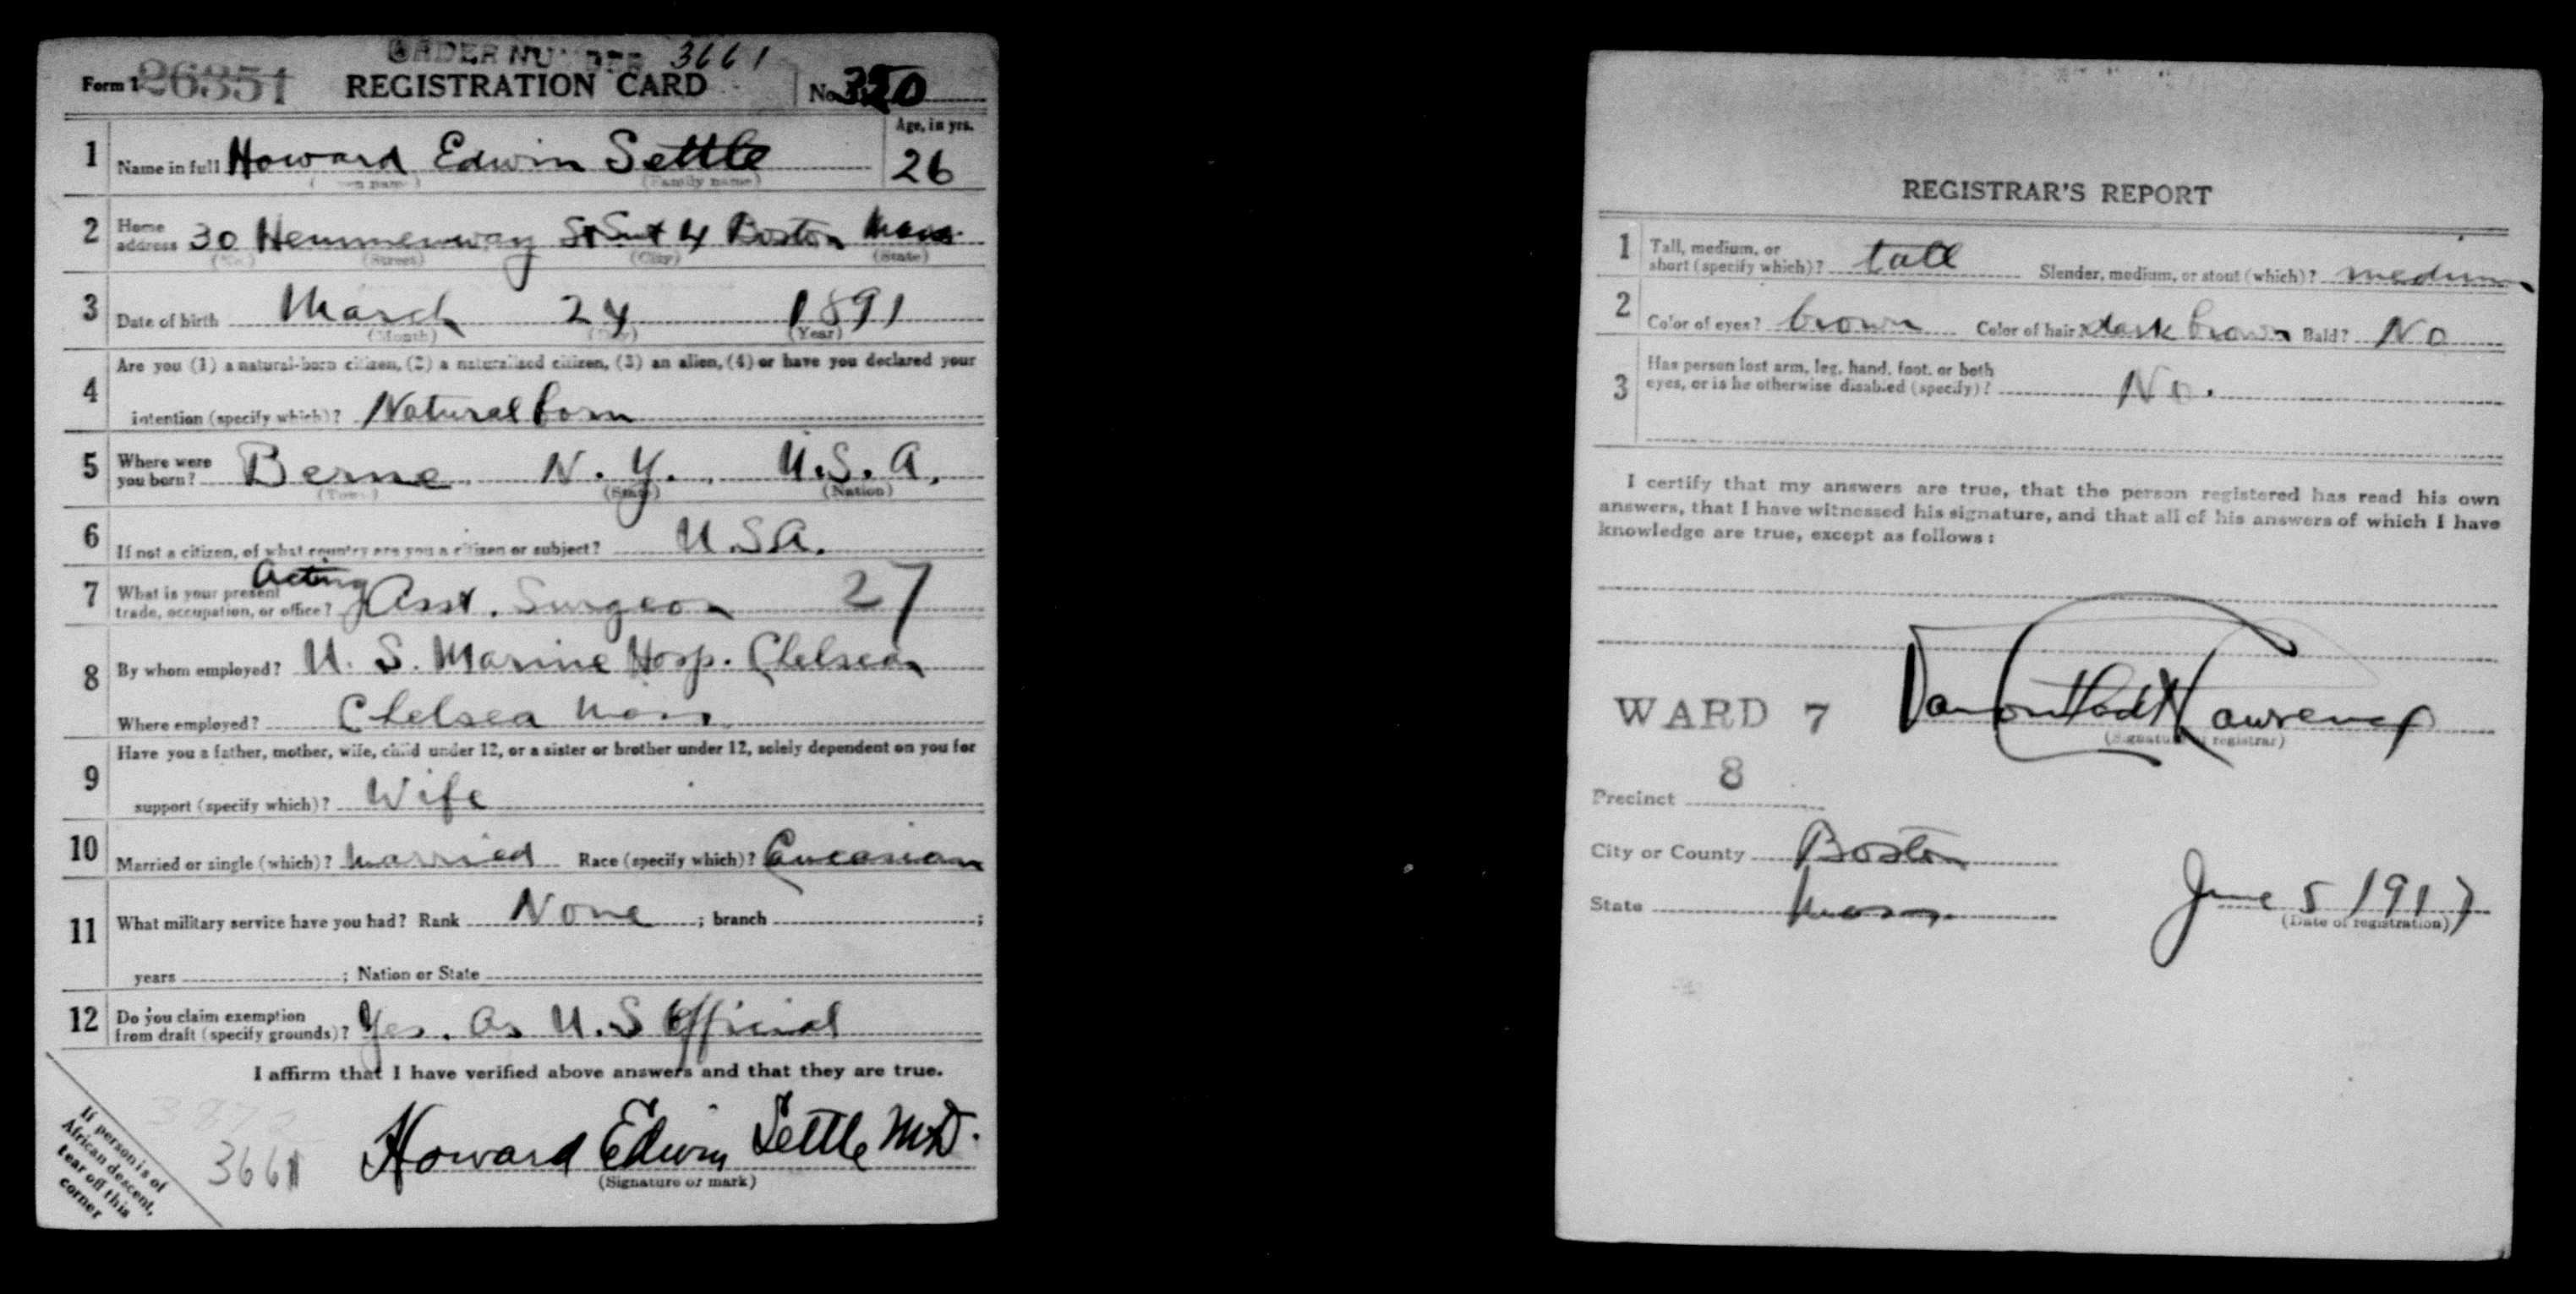 ORDER NUMBER 3661
Form 1 26351 REGISTRATION CARD No. 350
1 Name in full Howard Edwin Settle Age, in yrs. 26
(Family name)
2 Home address 30 Hemmenway St Suit 4 Boston Mass.
(No.) (Street) (City) (State)
3 Date of birth March 24 1891
(Month) (Day) (Year)
4 Are you (1) a natural-born citizen, (2) a naturalized citizen, (3) an alien, (4) or have you declared your
intention (specify which)? Natural born
5 Where were you born? Berne N.Y., U.S.A.
(Town) (State) (Nation)
6 If not a citizen, of what country are you a citizen or subject? U.S.A.
7 What is your present trade, occupation, or office? Acting Asst. Surgeon 27
8 By whom employed? U. S. Marine Hosp. Chelsea
Where employed? Chelsea Mass
9 Have you a father, mother, wife, child under 12, or a sister or brother under 12, solely dependent on you for
support (specify which)? Wife
10 Married or single (which)? Married Race (specify which)? Caucasian
11 What military service have you had? Rank None ; branch ;
years ; Nation or State
12 Do you claim exemption from draft (specify grounds)? Yes. As U.S Official
I affirm that I have verified above answers and that they are true.
3661 Howard Edwin Settle M.D.
(Signature or mark)
If person is of
African descent,
tear off this
corner
REGISTRAR'S REPORT
1 Tall, medium, or short (specify which)? tall Slender, medium, or stout (which)? medium
2 Color of eyes? brown Color of hair? dark brown Bald? No
3 Has person lost arm, leg, hand, foot, or both
eyes, or is he otherwise disabled (specify)? No.
I certify that my answers are true, that the person registered has read his own
answers, that I have witnessed his signature, and that all of his answers of which I have
knowledge are true, except as follows:
WARD 7 Lawrence
(Signature of registrar)
Precinct 8
City or County Boston
State Mass. June 5 1917
(Date of registration)